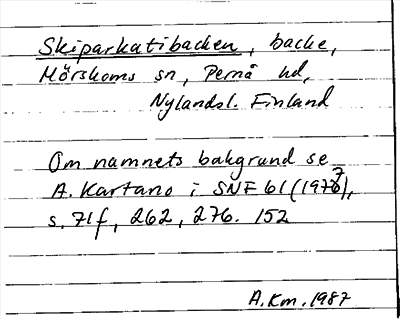 Skiparkatibacken, backe,
Mörskoms sn, Pernå hd,
Nylandsl. Finland
Om namnets bakgrund se
A. Kartano i SNF 61 (1977),
s. 71f, 262, 276. 152
A.Km. 1987